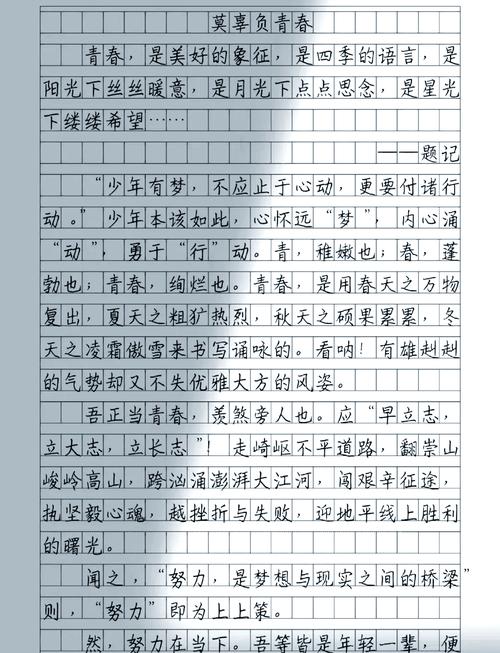 莫辜负青春
青春，是美好的象征，是四季的语言，是
阳光下丝丝暖意，是月光下点点思念，是星光
下缕缕希望……
——题记
“少年有梦，不应止于心动，更要付诸行
动。”少年本该如此，心怀远“梦”，内心涌
“动”，勇于“行”动。青，稚嫩也；春，蓬
勃也；青春，绚烂也。青春，是用春天之万物
复出，夏天之粗犷热烈，秋天之硕果累累，冬
天之凌霜傲雪来书写诵咏的。看呐！有雄赳赳
的气势却又不失优雅大方的风姿。
吾正当青春，羡煞旁人也。应“早立志，
立大志，立长志”！走崎岖不平道路，翻崇山
峻岭高山，跨汹涌澎湃大江河，闯艰辛征途，
执坚毅心魂，越挫折与失败，迎地平线上胜利
的曙光。
闻之，“努力，是梦想与现实之间的桥梁”
则，“努力”即为上上策。
然，努力在当下。吾等皆是年轻一辈，便